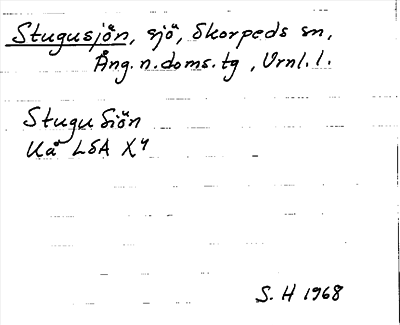 Stugusjön, sjö, Skorpeds sn,
Ång. n. doms. tg, Vrnl. l.
Stugu Siön
Ua LSA X4
S. H 1968